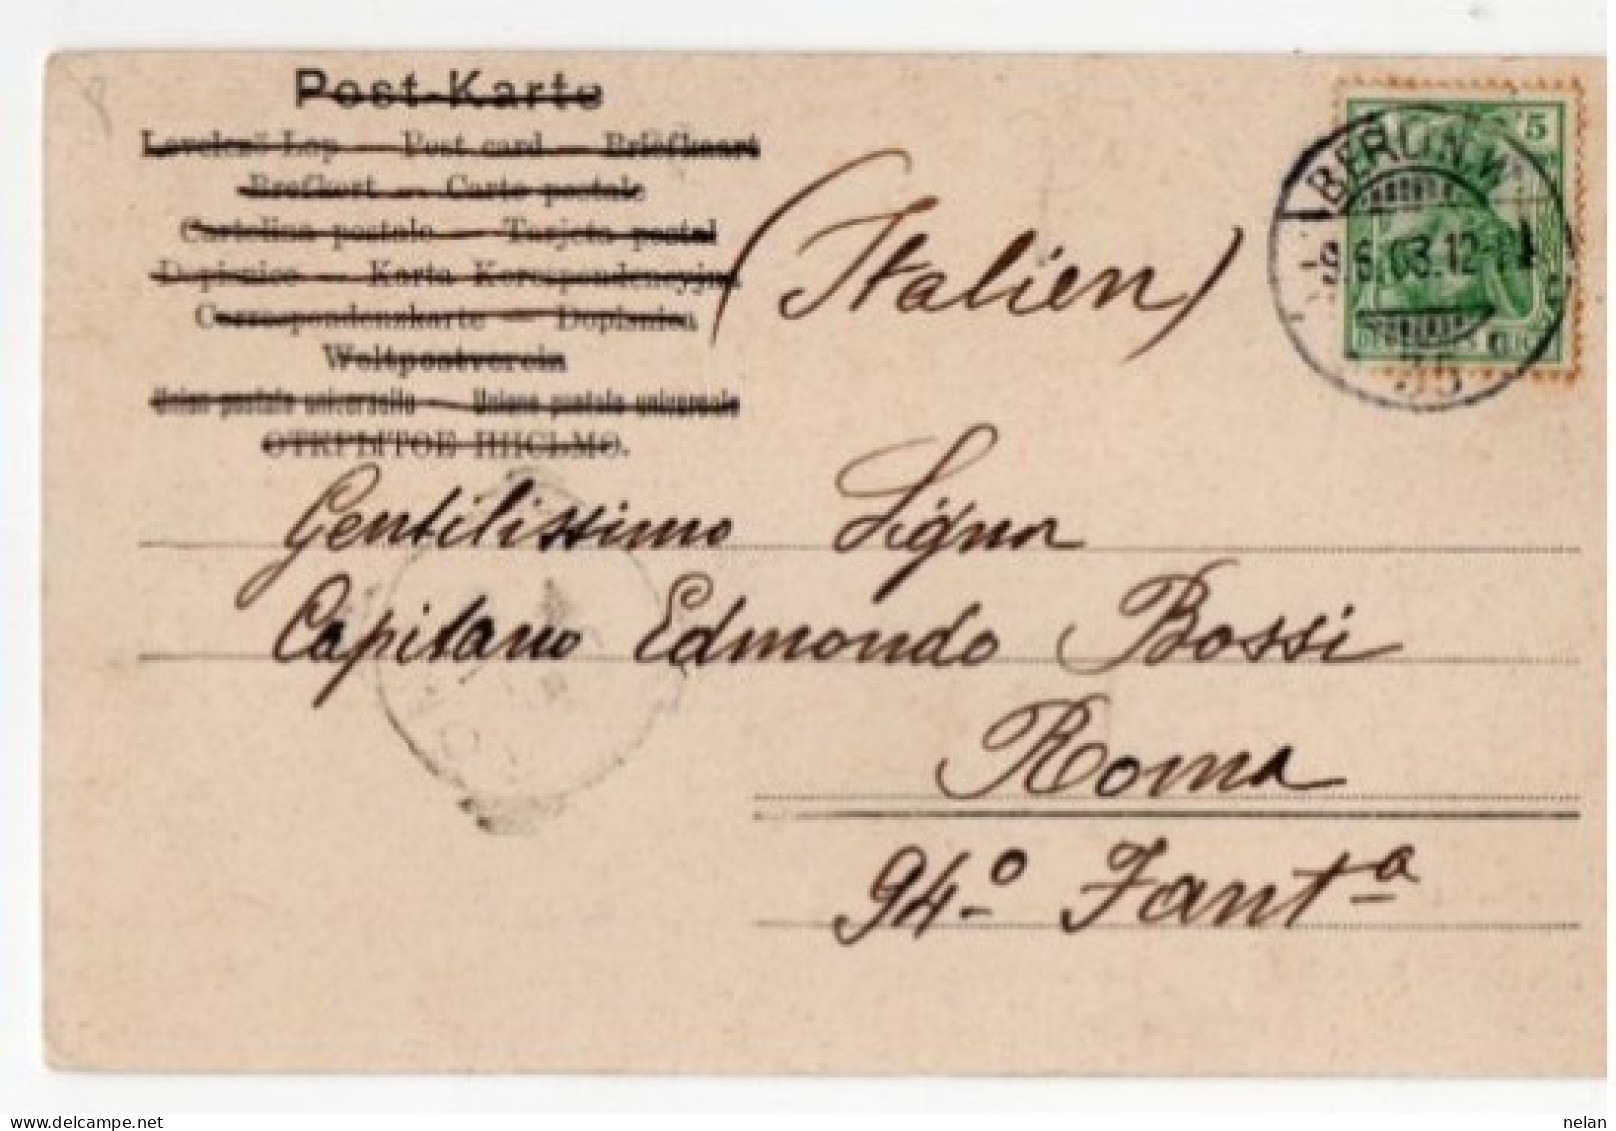 Post-Karte
Levelező-Lap — Post card — Briefkaart
Brefkort — Carte postale
Cartolina postale — Tarjeta postal
Dopisnice — Karta Korespondencyjna
Correspondenzkarte — Dopisnica
Weltpostverein
Union postale universelle — Unione postale universale
ОТКРЫТОЕ ПИСЬМО.
(Italien)
5
BERLIN.W.
6.03.12-1
35
Gentilissimo Signor
Capitano Edmondo Bossi
Roma
94.º Fantª
nelan